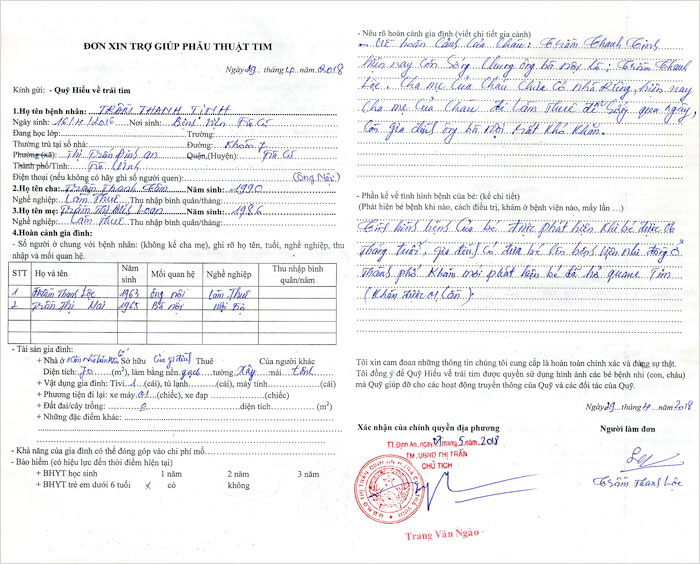 ĐƠN XIN TRỢ GIÚP PHẪU THUẬT TIM
Ngày 29 tháng 4 /2018
Kính gửi: - Quỹ Hiểu về trái tim
1.Họ tên bệnh nhân: TRẦM THANH TỊNH
Ngày sinh: 16/11/2016 Nơi sinh: Bệnh Viện Trà Cú
Đang học lớp: Trường:
Thường trú tại số nhà: Đường: Khóm 7
Phường (xã): Thị Trấn Định An Quận (Huyện): Trà Cú
Thành phố/Tỉnh: Trà Vinh
Điện thoại (nếu không có hãy ghi số người quen): (Ông Nội)
2.Họ tên cha: Trầm Thanh Năm sinh: 1990
Nghề nghiệp: Làm Thuê Thu nhập bình quân/tháng:
3.Họ tên mẹ: Trầm Thị Loan Năm sinh: 1986
Nghề nghiệp: Làm Thuê Thu nhập bình quân/tháng:
4.Hoàn cảnh gia đình:
- Số người ở chung với bệnh nhân: (không kể cha mẹ), ghi rõ họ tên, tuổi, nghề nghiệp, thu
nhập và mối quan hệ.
STT Họ và tên Năm sinh Mối quan hệ Nghề nghiệp Thu nhập bình quân/năm
1 Trầm Thanh Lộc 1963 ông nội Làm Thuê
2 Trần Thị Mai 1965 Bà nội Nội Trợ
- Tài sản gia đình:
+ Nhà ở Sở hữu của gia đình Thuê Của người khác
Diện tích: 70 (m2), làm bằng nền gạch tường xây mái tôn
+ Vật dụng gia đình: Tivi 1 (cái), tủ lạnh (cái), máy tính (cái)
+ Phương tiện đi lại: xe máy 01 (chiếc), xe đạp (chiếc)
+ Đất đai/cây trồng: 0 diện tích (m2)
+ Những đặc điểm khác:
- Khả năng của gia đình có thể đóng góp vào chi phí mổ
- Bảo hiểm (có hiệu lực đến thời điểm hiện tại)
+ BHYT học sinh 1 năm 2 năm 3 năm
+ BHYT trẻ em dưới 6 tuổi x có không
- Nêu rõ hoàn cảnh gia đình (viết chi tiết gia cảnh)
- Về hoàn cảnh của cháu: Trầm Thanh Tịnh
Hiện nay còn sống chung ông bà nội tên: Trầm Thanh
Lộc. Cha mẹ của cháu chưa có nhà riêng, hiện nay
cha mẹ của cháu đi làm thuê để sống qua ngày,
còn gia đình ông bà nội rất khó khăn.
- Phần kể về tình hình bệnh của bé: (kể chi tiết)
(Phát hiện bé bệnh khi nào, cách điều trị, khám ở bệnh viện nào, mấy lần …)
Tình hình bệnh của bé được phát hiện khi bé được 06
tháng tuổi, gia đình có đưa bé lên bệnh viện nhi đồng ở
thành phố khám mới phát hiện bé đã hở quang Tim
(Khám được 01 lần).
Tôi xin cam đoan những thông tin chúng tôi cung cấp là hoàn toàn chính xác và đúng sự thật.
Tôi đồng ý để Quỹ Hiểu về trái tim được quyền sử dụng hình ảnh các bé bệnh nhi (con, cháu)
mà Quỹ giúp đỡ cho các hoạt động truyền thông của Quỹ và các đối tác của Quỹ.
Ngày 29 tháng 4 /2018
Xác nhận của chính quyền địa phương Người làm đơn
TT.Định An, ngày 07 tháng 5 năm 2018
TM. UBND THỊ TRẤN
CHỦ TỊCH
Trang Văn Ngào
Trầm Thanh Lộc